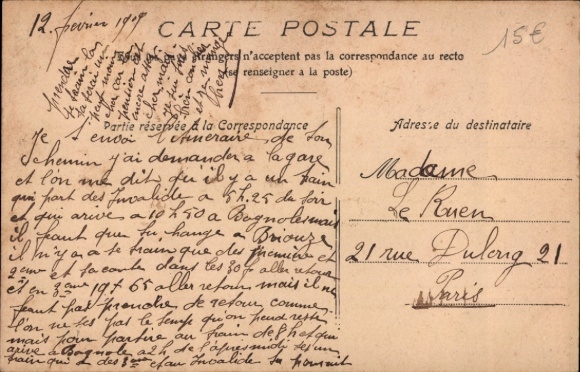 12. fevrier 1909
15€
CARTE POSTALE
étrangers n'acceptent pas la correspondance au recto
(se renseigner à la poste)
prendre
le train
Partie réservée à la Correspondance
Adresse du destinataire
Je t'envoi l'itineraire de ton
chemin j'ai demander a la gare
et l'on me dit qu'il y a un train
qui part des Invalide a 5h.25 du soir
et qui arive a 10h50 a Bagnoles mais
il faut que tu change a Briouze
il n'y a a se train que des première et
2eme et sa coute dans les 30f aller retour
et en 3eme 19f 65 aller retour mais il ne
faut pas prendre de retour comme
l'on ne ses pas le temp qu'on peud reste
mais pour partire au train de 8h et qui
arive a Bagnole a 2h de l'apres midi ses un
train qui a des 3eme et au Invalide
Madame
Le Ruen
21 rue Dulong 21
Paris